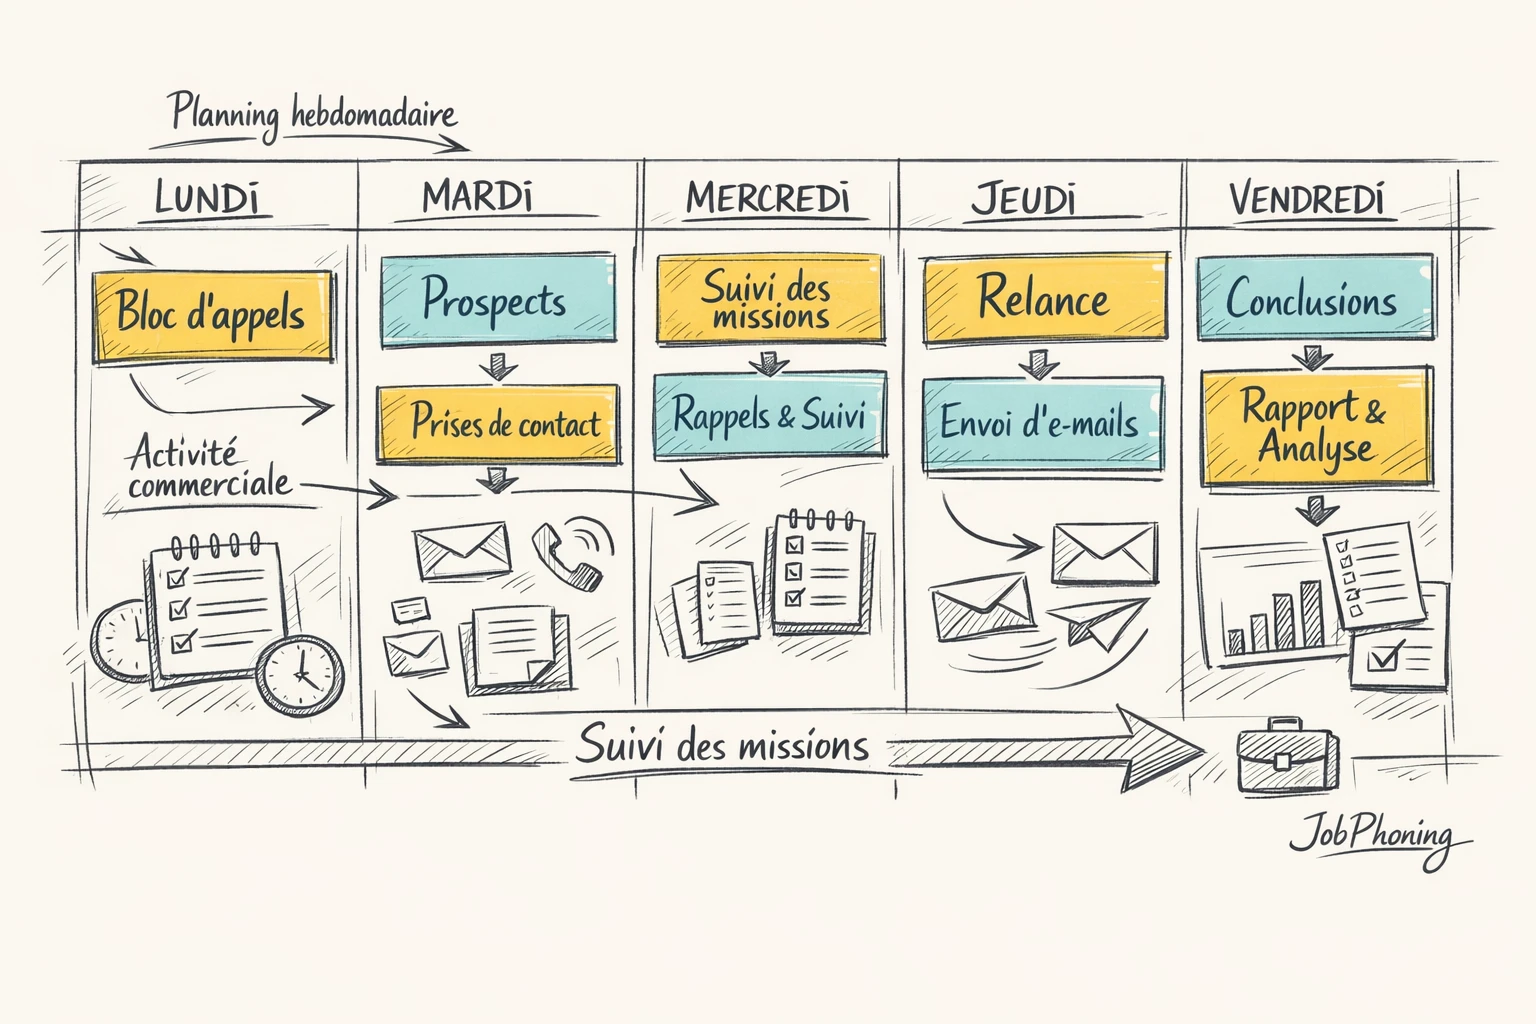 Planning hebdomadaire
LUNDi
MARDi
MERCREDi
JEUDi
VENDREDi
Bloc d'appels
Activité
commerciale
Prospects
Prises de contact
Suivi des
missions
Rappels & Suivi
Relance
Envoi d'e-mails
Conclusions
Rapport &
Analyse
Suivi des missions
JobPhoning